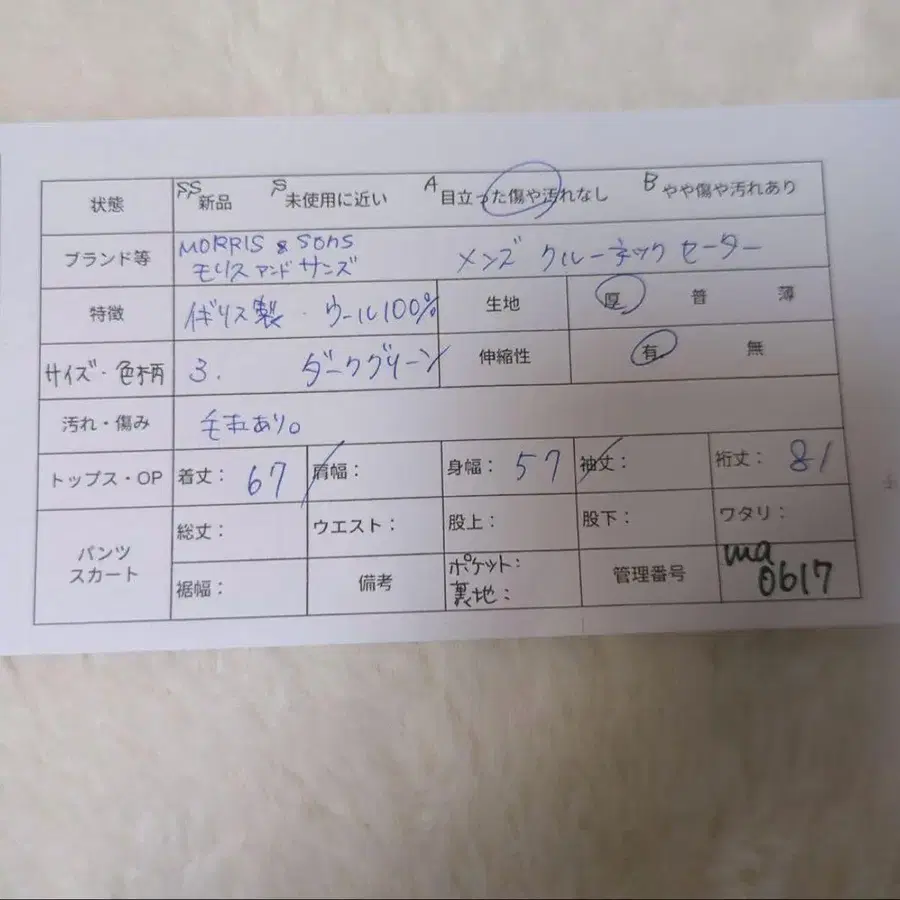 状態 SS新品 S未使用に近い A目立った傷や汚れなし Bやや傷や汚れあり
ブランド等 MORRIS & SONS メンズ クルーネック セーター
モリス アンド サンズ
特徴 イギリス製・ウール100% 生地 厚 普 薄
サイズ・色柄 3. ダークグリーン 伸縮性 有 無
汚れ・傷み 毛玉あり。
トップス・OP 着丈: 67 肩幅: 身幅: 57 袖丈: 裄丈: 81
パンツ
スカート
総丈: ウエスト: 股上: 股下: ワタリ:
裾幅: 備考 ポケット:
裏地:
管理番号 ma
0617